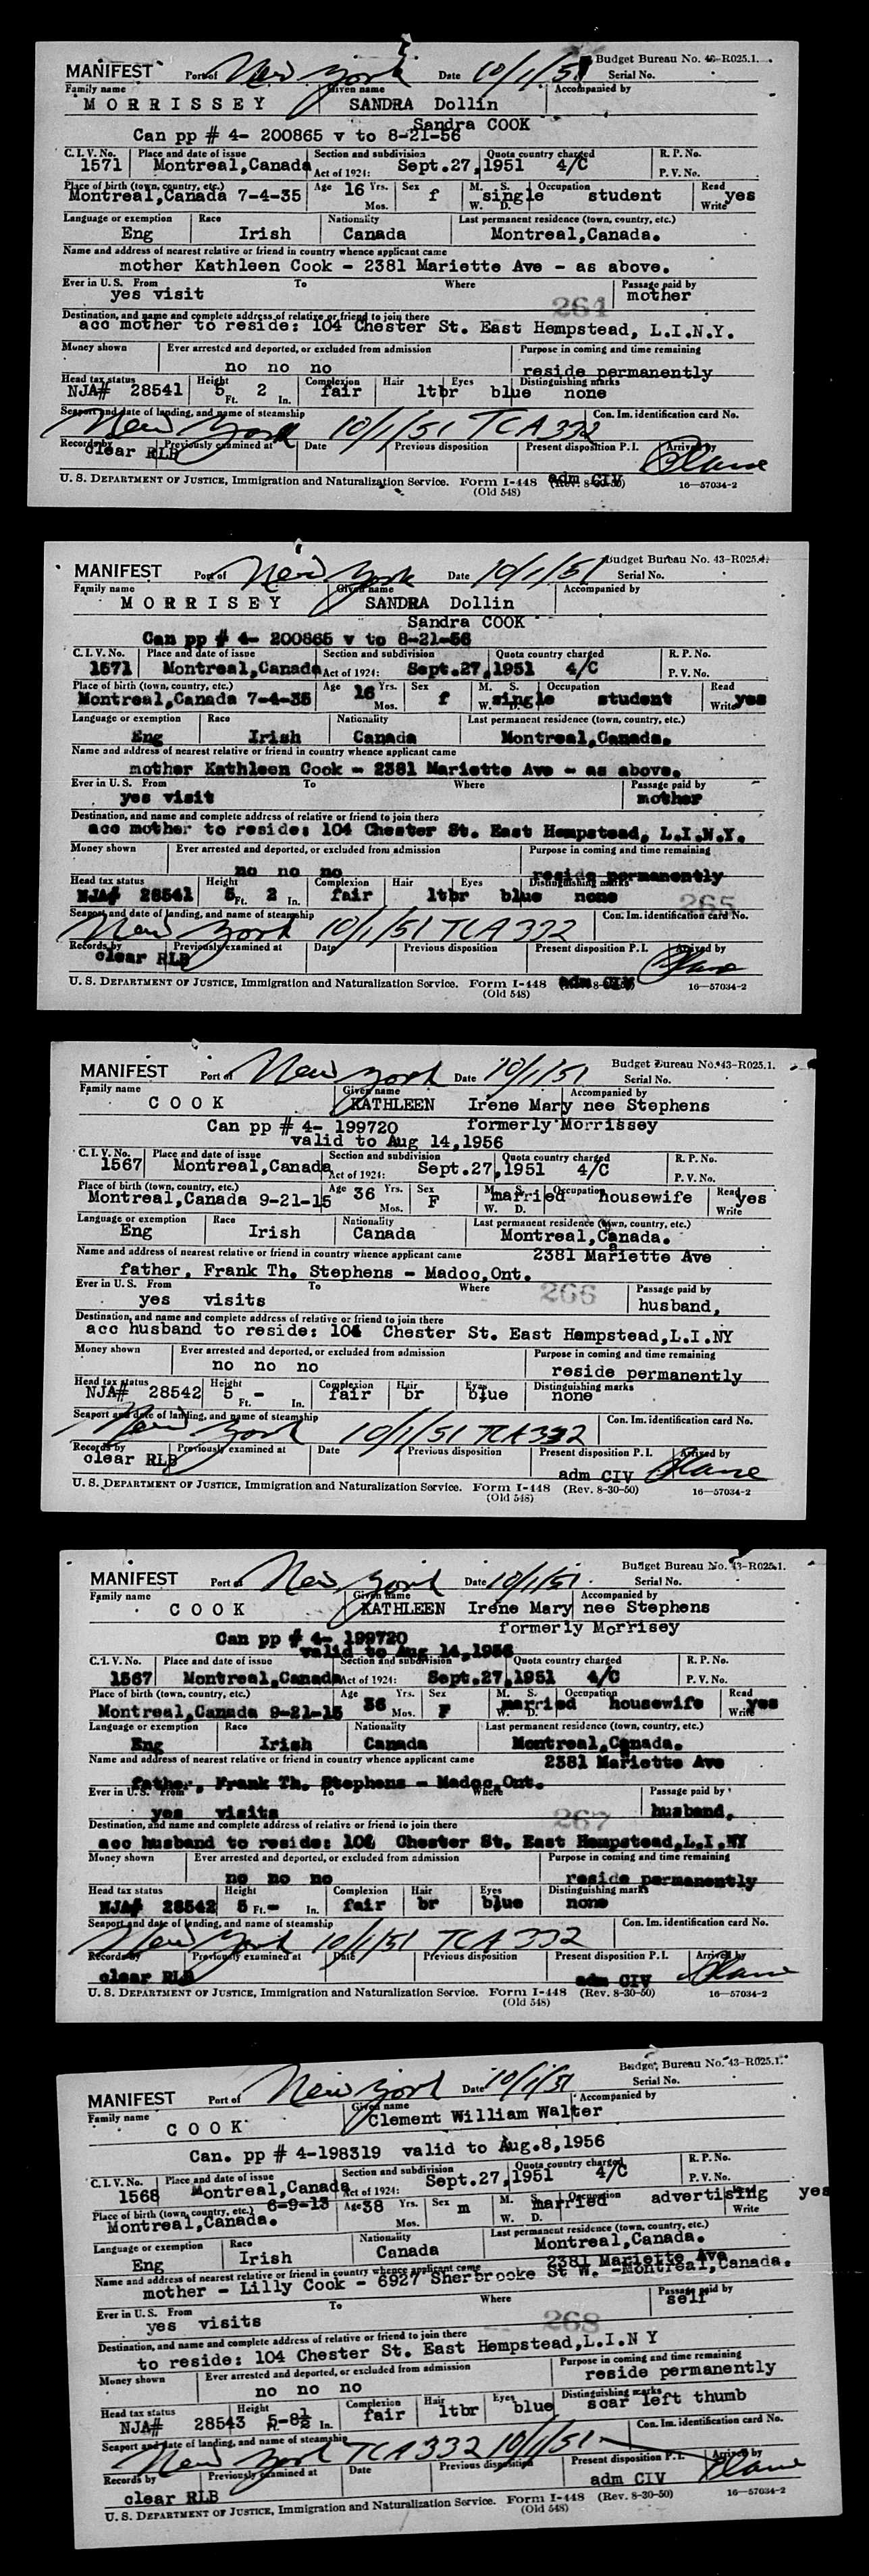 MANIFEST Port of New York Date 10/1/51 Budget Bureau No. 43-R025.1.
Serial No.
Family name Given name Accompanied by
MORRISSEY SANDRA Dollin
Sandra COOK
Can pp # 4- 200865 v to 8-21-56
C. I. V. No. Place and date of issue Section and subdivision Quota country charged R. P. No.
1571 Montreal,Canada Act of 1924: Sept.27,1951 4/C P. V. No.
Place of birth (town, country, etc.) Age 16 Yrs. Sex M. S. Occupation Read
Montreal,Canada 7-4-35 Mos. f W. D. single student Write yes
Language or exemption Race Nationality Last permanent residence (town, country, etc.)
Eng Irish Canada Montreal,Canada.
Name and address of nearest relative or friend in country whence applicant came
mother Kathleen Cook - 2381 Mariette Ave - as above.
Ever in U. S. From To Where Passage paid by
yes visit 264 mother
Destination, and name and complete address of relative or friend to join there
acc mother to reside: 104 Chester St. East Hempstead, L.I.N.Y.
Money shown Ever arrested and deported, or excluded from admission Purpose in coming and time remaining
no no no reside permanently
Head tax status Height Complexion Hair Eyes Distinguishing marks
NJA# 28541 5 Ft. 2 In. fair ltbr blue none
Seaport and date of landing, and name of steamship Con. Im. identification card No.
New York 10/1/51 TCA 332
Records by Previously examined at Date Previous disposition Present disposition P. I. Arrived by
clear RLB adm CIV
U. S. DEPARTMENT OF JUSTICE, Immigration and Naturalization Service. Form I-448 (Rev. 8-30-50) 16—57034-2
(Old 548)
MANIFEST Port of New York Date 10/1/51 Budget Bureau No. 43-R025.1.
Serial No.
Family name Given name Accompanied by
MORRISEY SANDRA Dollin
Sandra COOK
Can pp # 4- 200865 v to 8-21-56
C. I. V. No. Place and date of issue Section and subdivision Quota country charged R. P. No.
1571 Montreal,Canada Act of 1924: Sept.27,1951 4/C P. V. No.
Place of birth (town, country, etc.) Age 16 Yrs. Sex M. S. Occupation Read
Montreal,Canada 7-4-35 Mos. f W. D. single student Write yes
Language or exemption Race Nationality Last permanent residence (town, country, etc.)
Eng Irish Canada Montreal,Canada.
Name and address of nearest relative or friend in country whence applicant came
mother Kathleen Cook - 2381 Mariette Ave - as above.
Ever in U. S. From To Where Passage paid by
yes visit mother
Destination, and name and complete address of relative or friend to join there
acc mother to reside: 104 Chester St. East Hempstead, L.I.N.Y.
Money shown Ever arrested and deported, or excluded from admission Purpose in coming and time remaining
no no no reside permanently
Head tax status Height Complexion Hair Eyes Distinguishing marks
NJA# 28541 5 Ft. 2 In. fair ltbr blue none 265
Seaport and date of landing, and name of steamship Con. Im. identification card No.
New York 10/1/51 TCA 332
Records by Previously examined at Date Previous disposition Present disposition P. I. Arrived by
clear RLB adm CIV
U. S. DEPARTMENT OF JUSTICE, Immigration and Naturalization Service. Form I-448 16—57034-2
(Old 548)
MANIFEST Port of New York Date 10/1/51 Budget Bureau No. 43-R025.1.
Serial No.
Family name Given name Accompanied by
COOK KATHLEEN Irene Mary nee Stephens
Can pp # 4- 199720 formerly Morrissey
valid to Aug 14,1956
C. I. V. No. Place and date of issue Section and subdivision Quota country charged R. P. No.
1567 Montreal,Canada Act of 1924: Sept.27,1951 4/C P. V. No.
Place of birth (town, country, etc.) Age 36 Yrs. Sex M. S. Occupation Read
Montreal,Canada 9-21-15 Mos. F W. D. married housewife Write yes
Language or exemption Race Nationality Last permanent residence (town, country, etc.)
Eng Irish Canada Montreal,Canada.
Name and address of nearest relative or friend in country whence applicant came 2381 Mariette Ave
father, Frank Th. Stephens - Madoc,Ont.
Ever in U. S. From To Where Passage paid by
yes visits 266 husband,
Destination, and name and complete address of relative or friend to join there
acc husband to reside: 104 Chester St. East Hempstead,L.I.NY
Money shown Ever arrested and deported, or excluded from admission Purpose in coming and time remaining
no no no reside permanently
Head tax status Height Complexion Hair Eyes Distinguishing marks
NJA# 28542 5 - Ft. In. fair br blue none
Seaport and date of landing, and name of steamship Con. Im. identification card No.
New York 10/1/51 TCA 332
Records by Previously examined at Date Previous disposition Present disposition P. I. Arrived by
clear RLB adm CIV
U. S. DEPARTMENT OF JUSTICE, Immigration and Naturalization Service. Form I-448 (Rev. 8-30-50) 16—57034-2
(Old 548)
MANIFEST Port of New York Date 10/1/51 Budget Bureau No. 43-R025.1.
Serial No.
Family name Given name Accompanied by
COOK KATHLEEN Irene Mary nee Stephens
formerly Morrisey
Can pp # 4- 199720
valid to Aug 14,1956
C. I. V. No. Place and date of issue Section and subdivision Quota country charged R. P. No.
1567 Montreal,Canada Act of 1924: Sept.27,1951 4/C P. V. No.
Place of birth (town, country, etc.) Age 36 Yrs. Sex M. S. Occupation Read
Montreal,Canada 9-21-15 Mos. F W. D. married housewife Write yes
Language or exemption Race Nationality Last permanent residence (town, country, etc.)
Eng Irish Canada Montreal,Canada.
Name and address of nearest relative or friend in country whence applicant came 2381 Mariette Ave
father, Frank Th. Stephens - Madoc,Ont.
Ever in U. S. From To Where Passage paid by
yes visits 267 husband,
Destination, and name and complete address of relative or friend to join there
acc husband to reside: 104 Chester St. East Hempstead,L.I.NY
Money shown Ever arrested and deported, or excluded from admission Purpose in coming and time remaining
no no no reside permanently
Head tax status Height Complexion Hair Eyes Distinguishing marks
NJA# 28542 5 Ft. - In. fair br blue none
Seaport and date of landing, and name of steamship Con. Im. identification card No.
New York 10/1/51 TCA 332
Records by Previously examined at Date Previous disposition Present disposition P. I. Arrived by
clear RLB adm CIV
U. S. DEPARTMENT OF JUSTICE, Immigration and Naturalization Service. Form I-448 (Rev. 8-30-50) 16—57034-2
(Old 548)
MANIFEST Port of New York Date 10/1/51 Budget Bureau No. 43-R025.1.
Serial No.
Family name Given name Accompanied by
COOK Clement William Walter
Can. pp # 4-198319 valid to Aug.8,1956
C. I. V. No. Place and date of issue Section and subdivision Quota country charged R. P. No.
1568 Montreal,Canada Act of 1924: Sept.27,1951 4/C P. V. No.
Place of birth (town, country, etc.) 6-9-13 Age 38 Yrs. Sex m M. S. Occupation
Montreal,Canada. Mos. W. D. married advertising Write yes
Language or exemption Race Nationality Last permanent residence (town, country, etc.)
Eng Irish Canada Montreal,Canada.
Name and address of nearest relative or friend in country whence applicant came 2381 Mariette Ave
mother - Lilly Cook - 6927 Sherbrooke St W. -Montreal,Canada.
Ever in U. S. From To Where Passage paid by
yes visits 268 self
Destination, and name and complete address of relative or friend to join there
to reside: 104 Chester St. East Hempstead,L.I.N Y
Money shown Ever arrested and deported, or excluded from admission Purpose in coming and time remaining
no no no reside permanently
Head tax status Height Complexion Hair Eyes Distinguishing marks
NJA# 28543 5-8½ In. fair ltbr blue scar left thumb
Seaport and date of landing, and name of steamship Con. Im. identification card No.
New York TCA 332 10/1/51
Records by Previously examined at Date Previous disposition Present disposition P. I. Arrived by
clear RLB adm CIV
U. S. DEPARTMENT OF JUSTICE, Immigration and Naturalization Service. Form I-448 (Rev. 8-30-50) 16—57034-2
(Old 548)